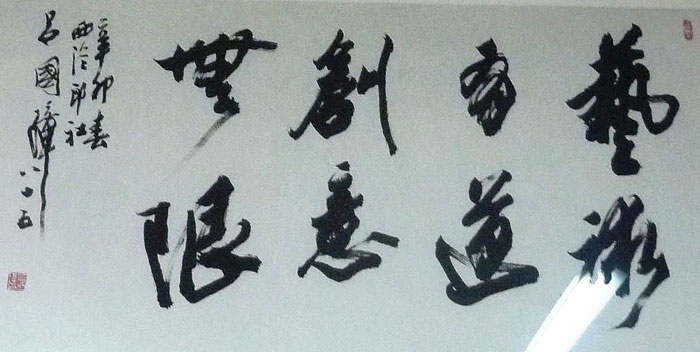 藝術
有道
創意
無限
辛卯春
西泠印社
呂國璋八十五